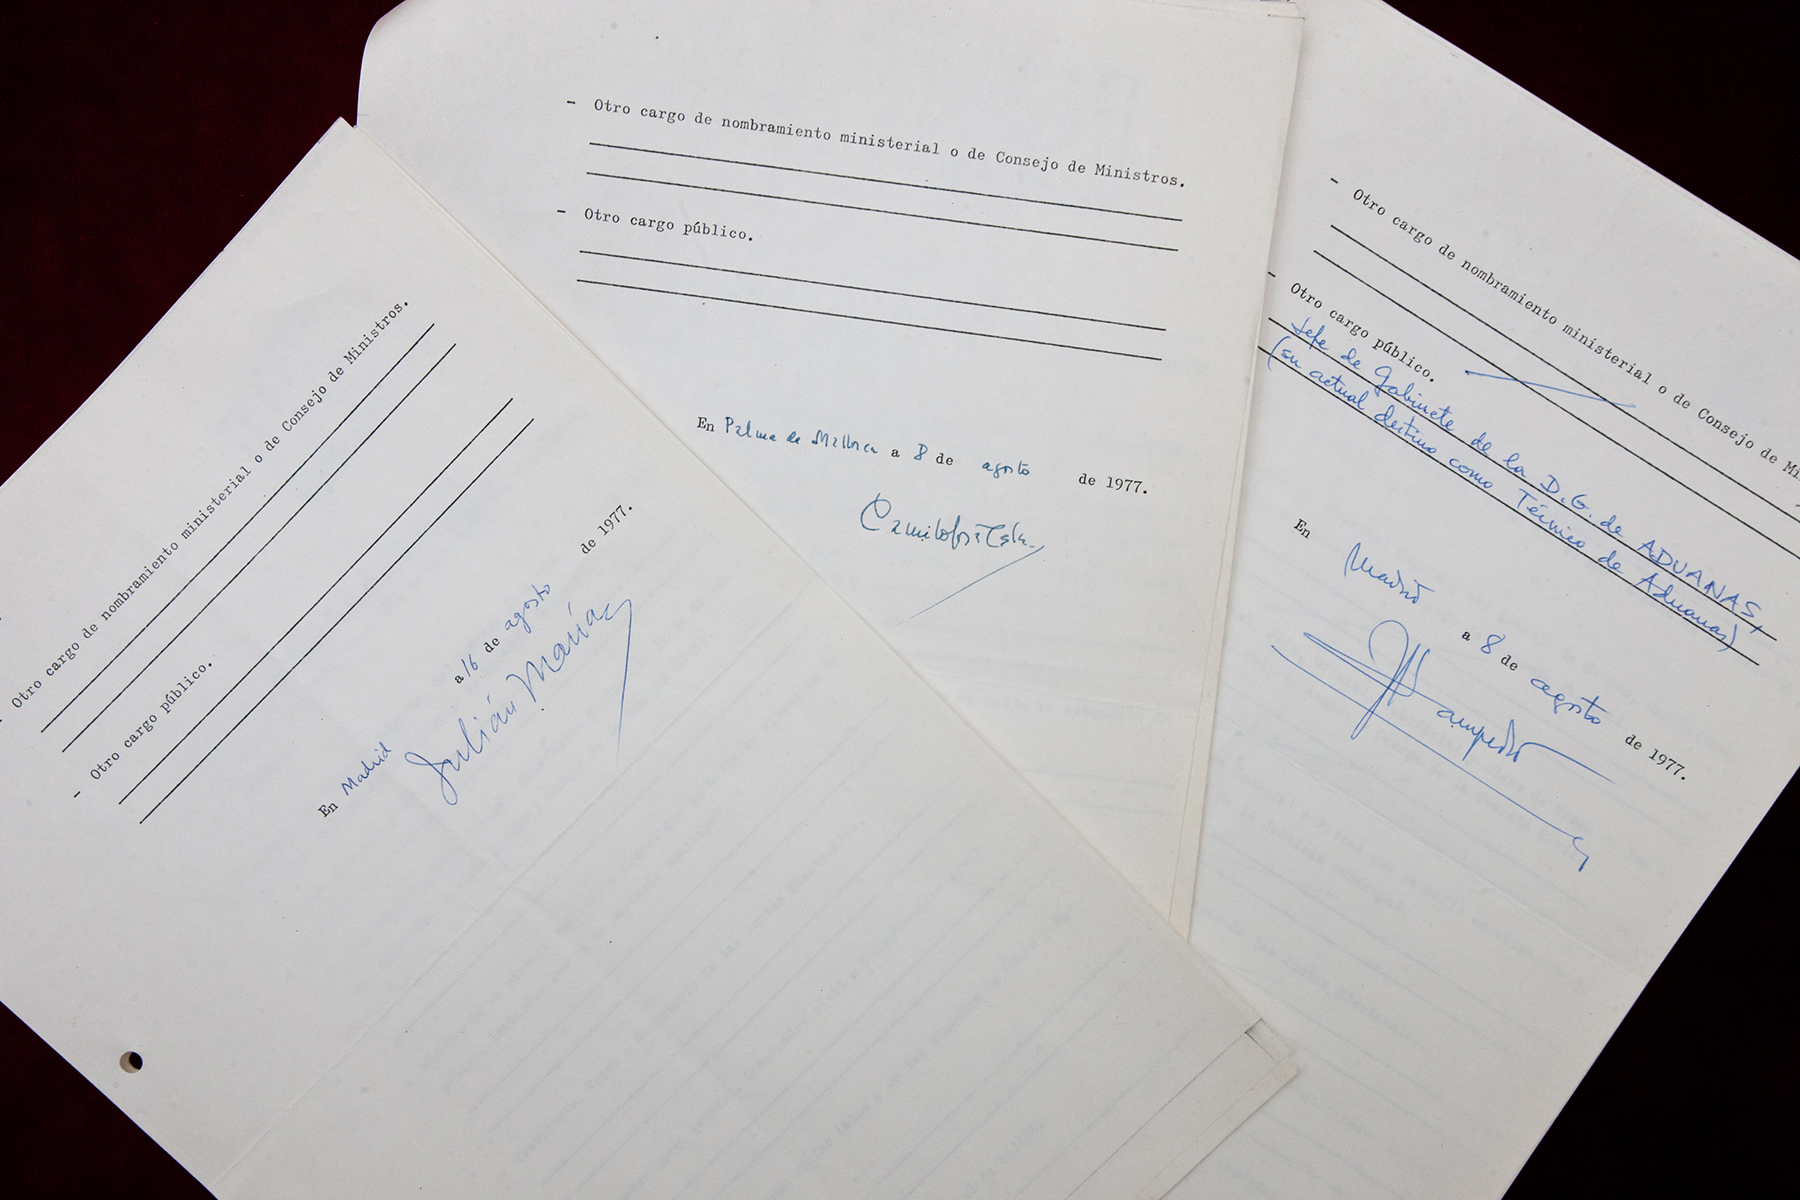 - Otro cargo de nombramiento ministerial o de Consejo de Ministros.
- Otro cargo público.
En Madrid a 16 de agosto de 1977.
Julián Marías
- Otro cargo de nombramiento ministerial o de Consejo de Ministros.
- Otro cargo público.
En Palma de Mallorca a 8 de agosto de 1977.
Camilo José Cela
- Otro cargo de nombramiento ministerial o de Consejo de Mi
- Otro cargo público.
Jefe de Gabinete de la D.G. de ADUANAS,
(su actual destino como Técnico de Aduanas)
En Madrid a 8 de agosto de 1977.
Sampedro